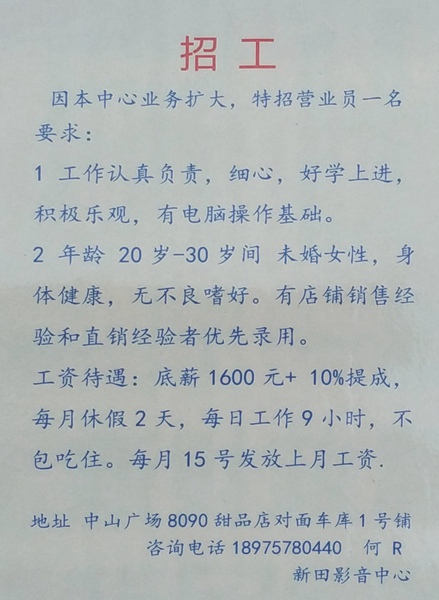 招工
因本中心业务扩大，特招营业员一名
要求：
1 工作认真负责，细心，好学上进，
积极乐观，有电脑操作基础。
2 年龄 20 岁-30 岁间 未婚女性，身
体健康，无不良嗜好。有店铺销售经
验和直销经验者优先录用。
工资待遇：底薪 1600 元+ 10%提成，
每月休假 2 天，每日工作 9 小时，不
包吃住。每月 15 号发放上月工资.
地址 中山广场 8090 甜品店对面车库 1 号铺
咨询电话 18975780440 何 R
新田影音中心